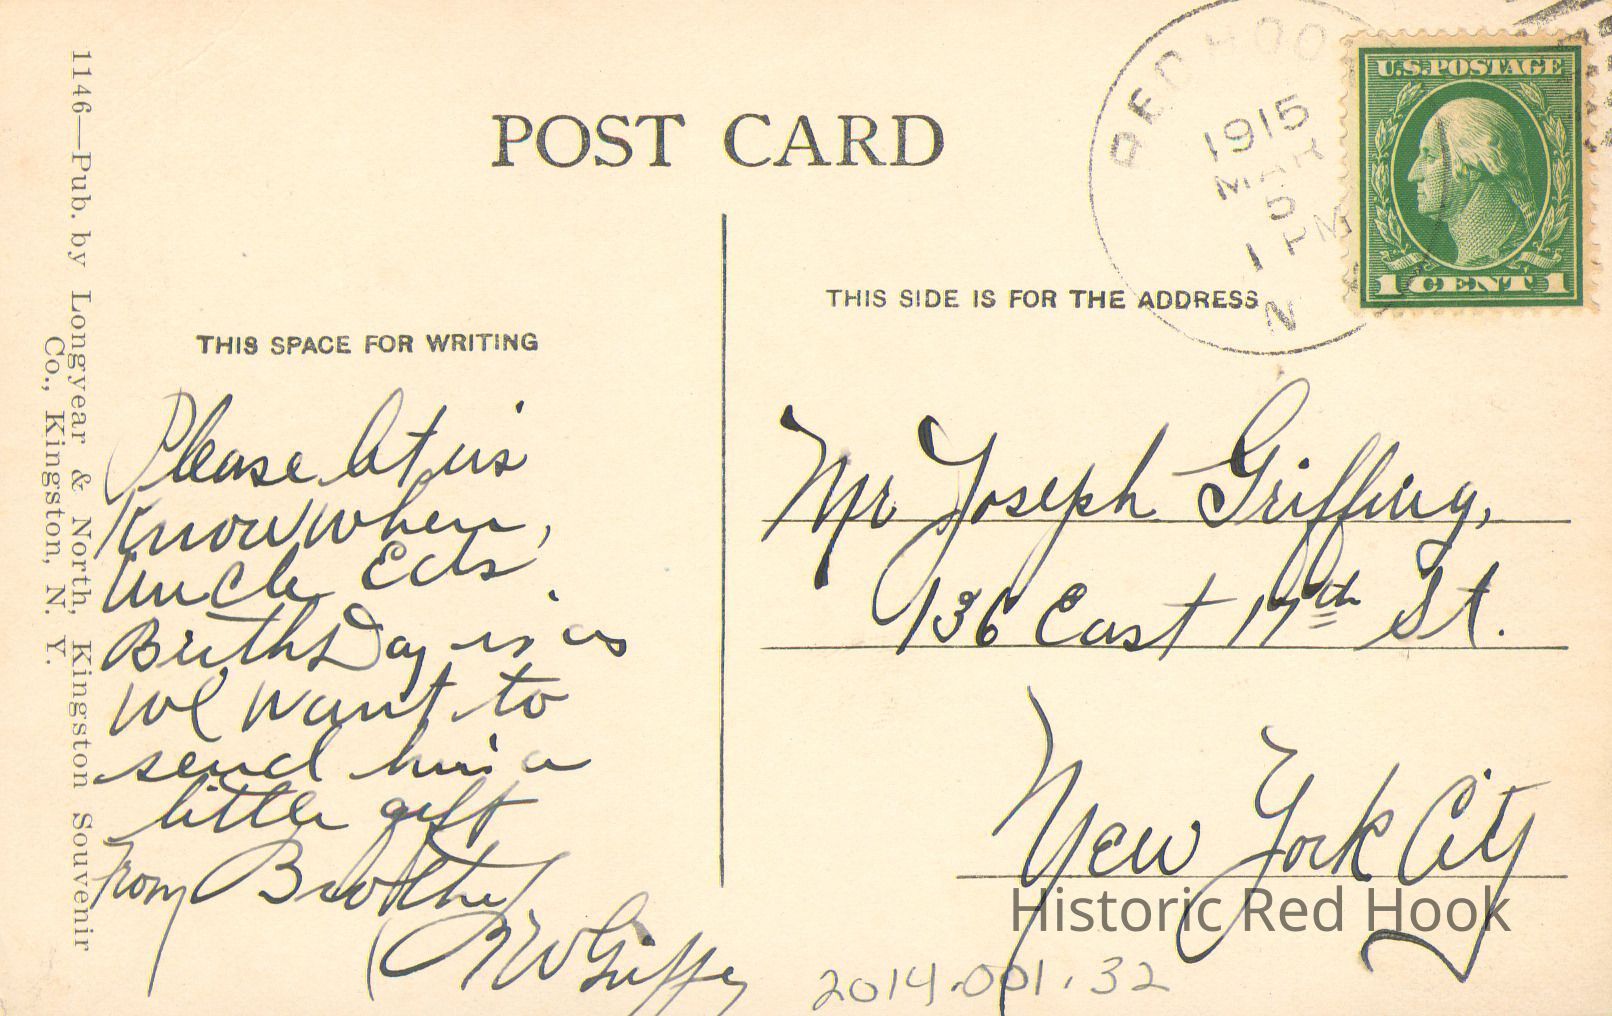 POST CARD
RED HOO
1915
MAR
5
1 PM
N
U.S. POSTAGE
1 CENT 1
THIS SIDE IS FOR THE ADDRESS
THIS SPACE FOR WRITING
1146—Pub. by Longyear & North, Kingston Souvenir
Co., Kingston, N. Y.
Please let us
Know when,
Uncle Eds
Birth Day is as
we want to
send him a
little gift
From Brother
W Griffing
Mr Joseph Griffing,
136 East 17th St.
New York City
Historic Red Hook
2014.001.32